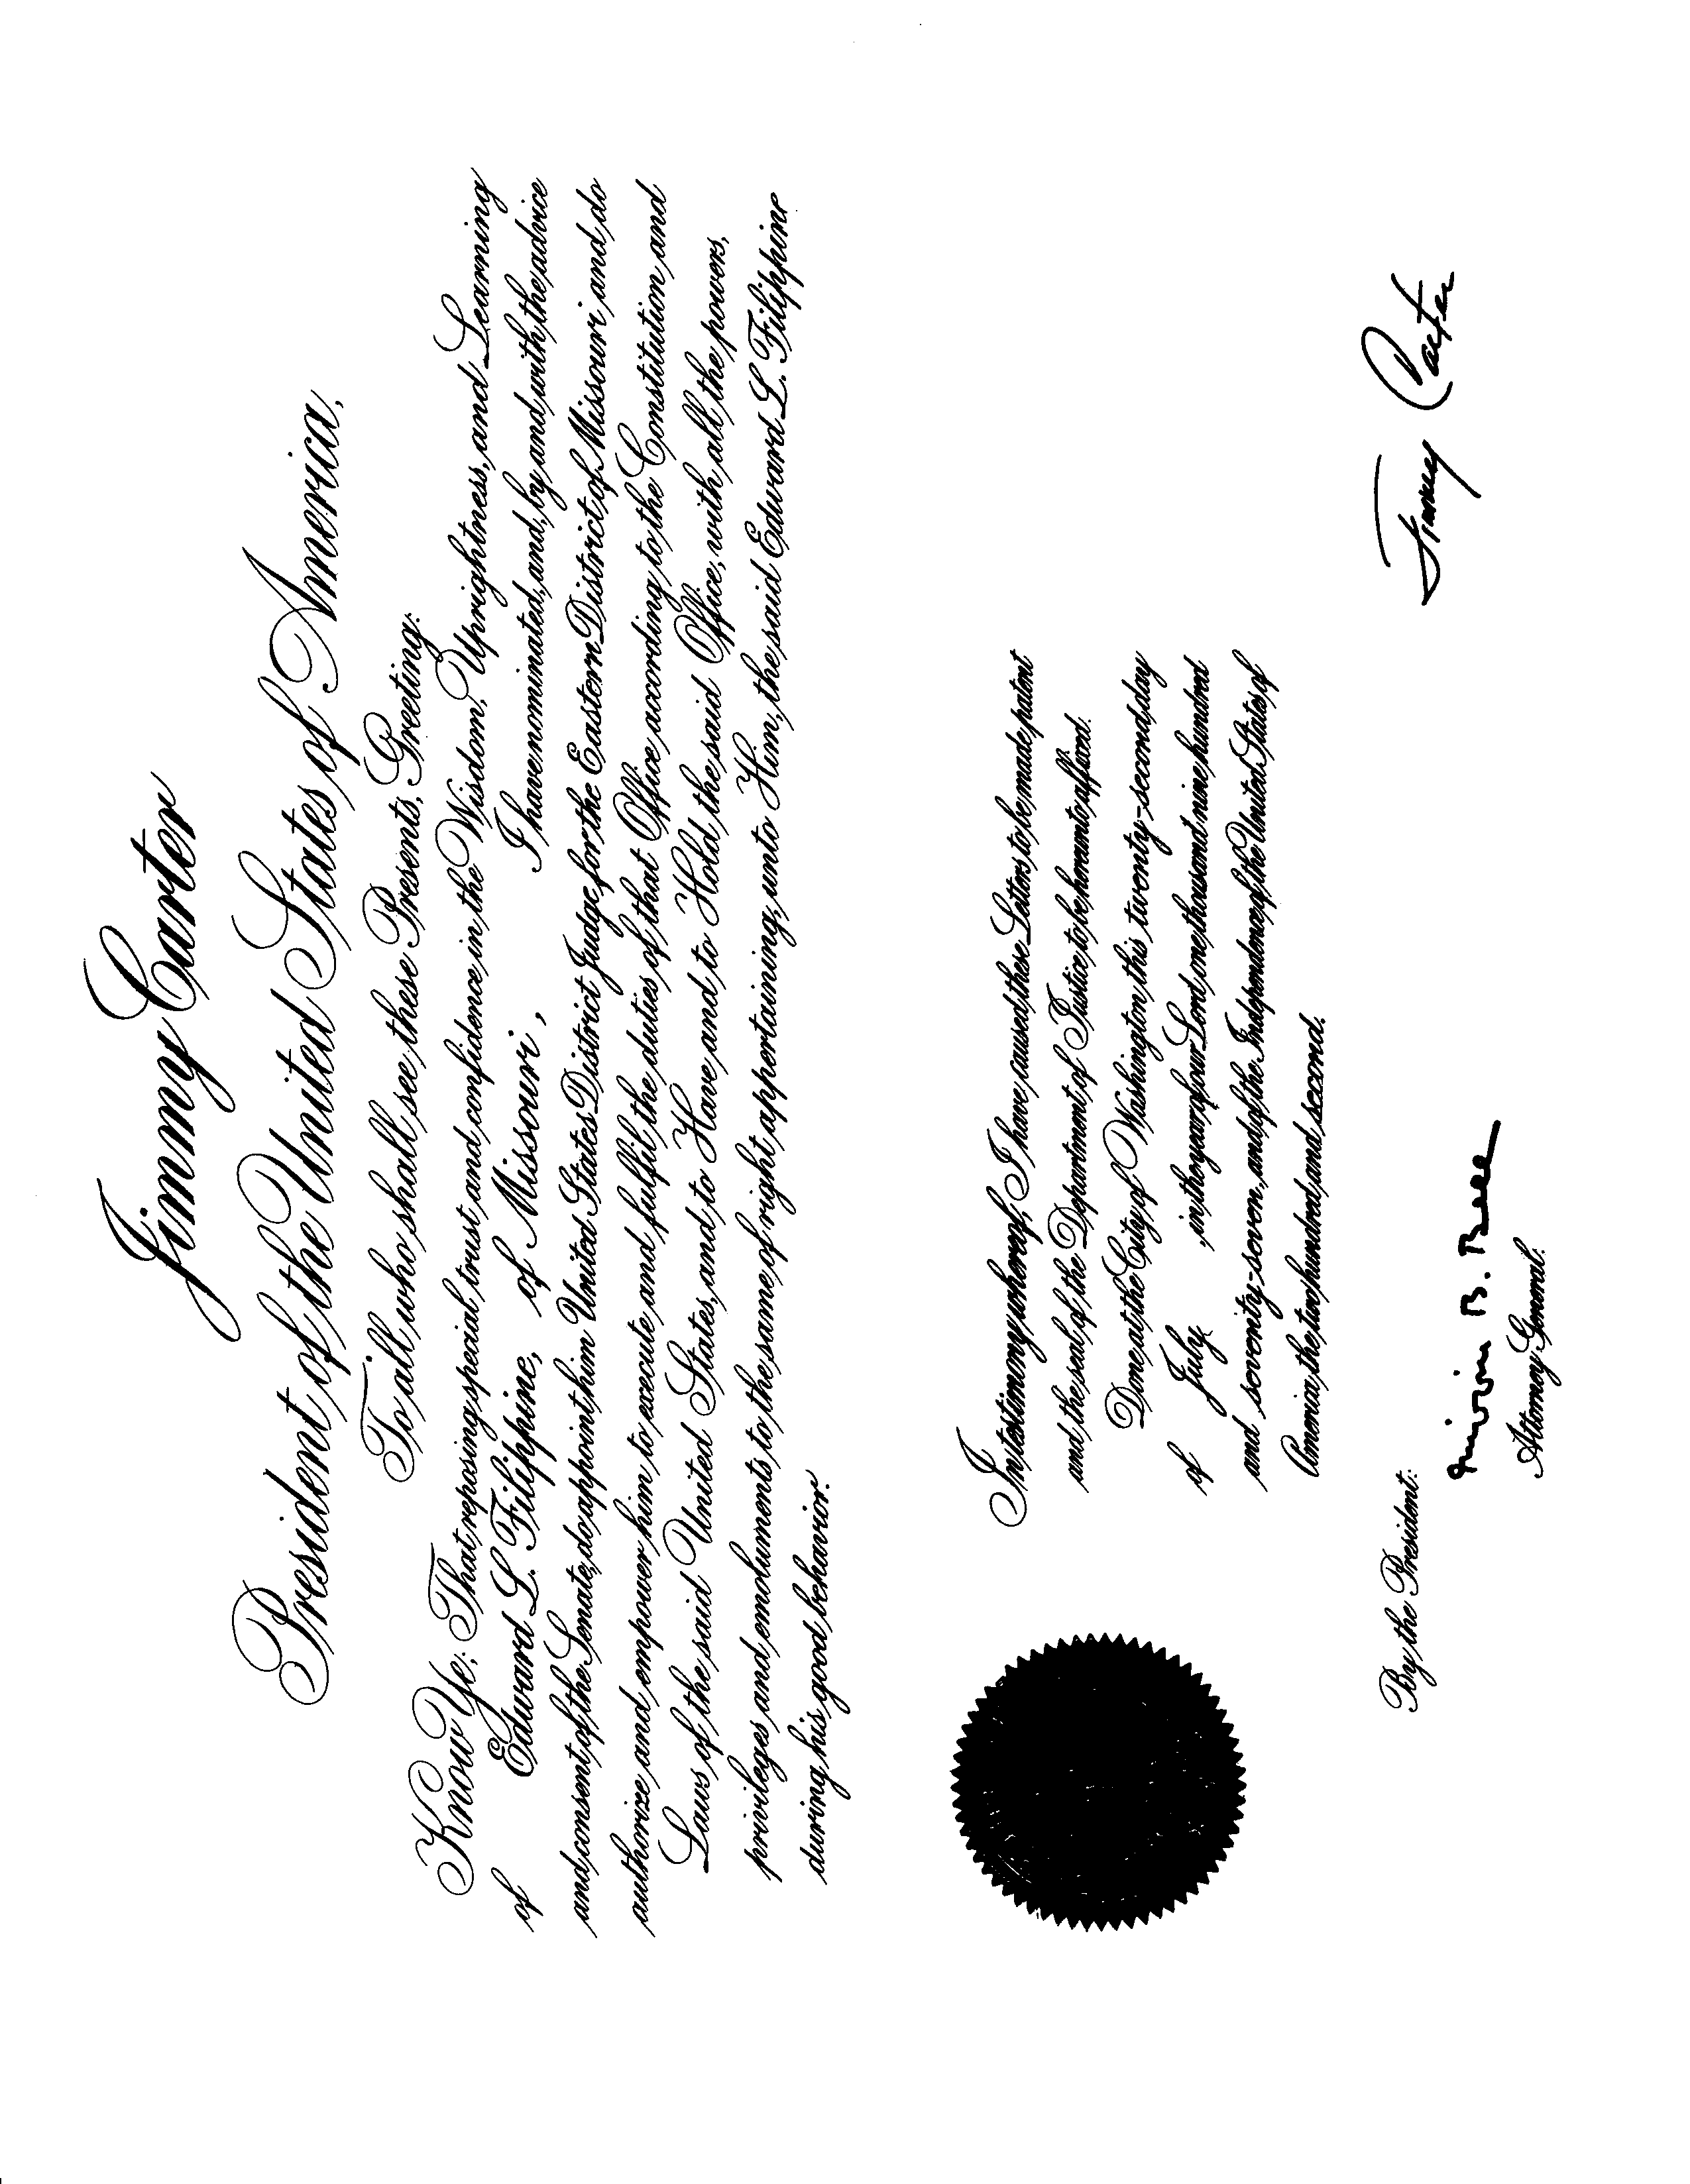 Jimmy Carter
President of the United States of America,
To all who shall see these Presents, Greeting:
Know Ye; That reposing special trust and confidence in the Wisdom, Uprightness, and Learning
of Edward L. Filippine, of Missouri, I have nominated, and, by and with the advice
and consent of the Senate, do appoint him United States District Judge for the Eastern District of Missouri and do
authorize and empower him to execute and fulfil the duties of that Office according to the Constitution and
Laws of the said United States, and to Have and to Hold the said Office, with all the powers,
privileges and emoluments to the same of right appertaining, unto Him, the said Edward L. Filippine
during his good behavior.
In testimony whereof, I have caused these Letters to be made patent
and the seal of the Department of Justice to be hereunto affixed.
Done at the City of Washington this twenty-second day
of July, in the year of our Lord one thousand nine hundred
and seventy-seven, and of the Independence of the United States of
America the two hundred and second.
Jimmy Carter
By the President:
Griffin B. Bell
Attorney General.